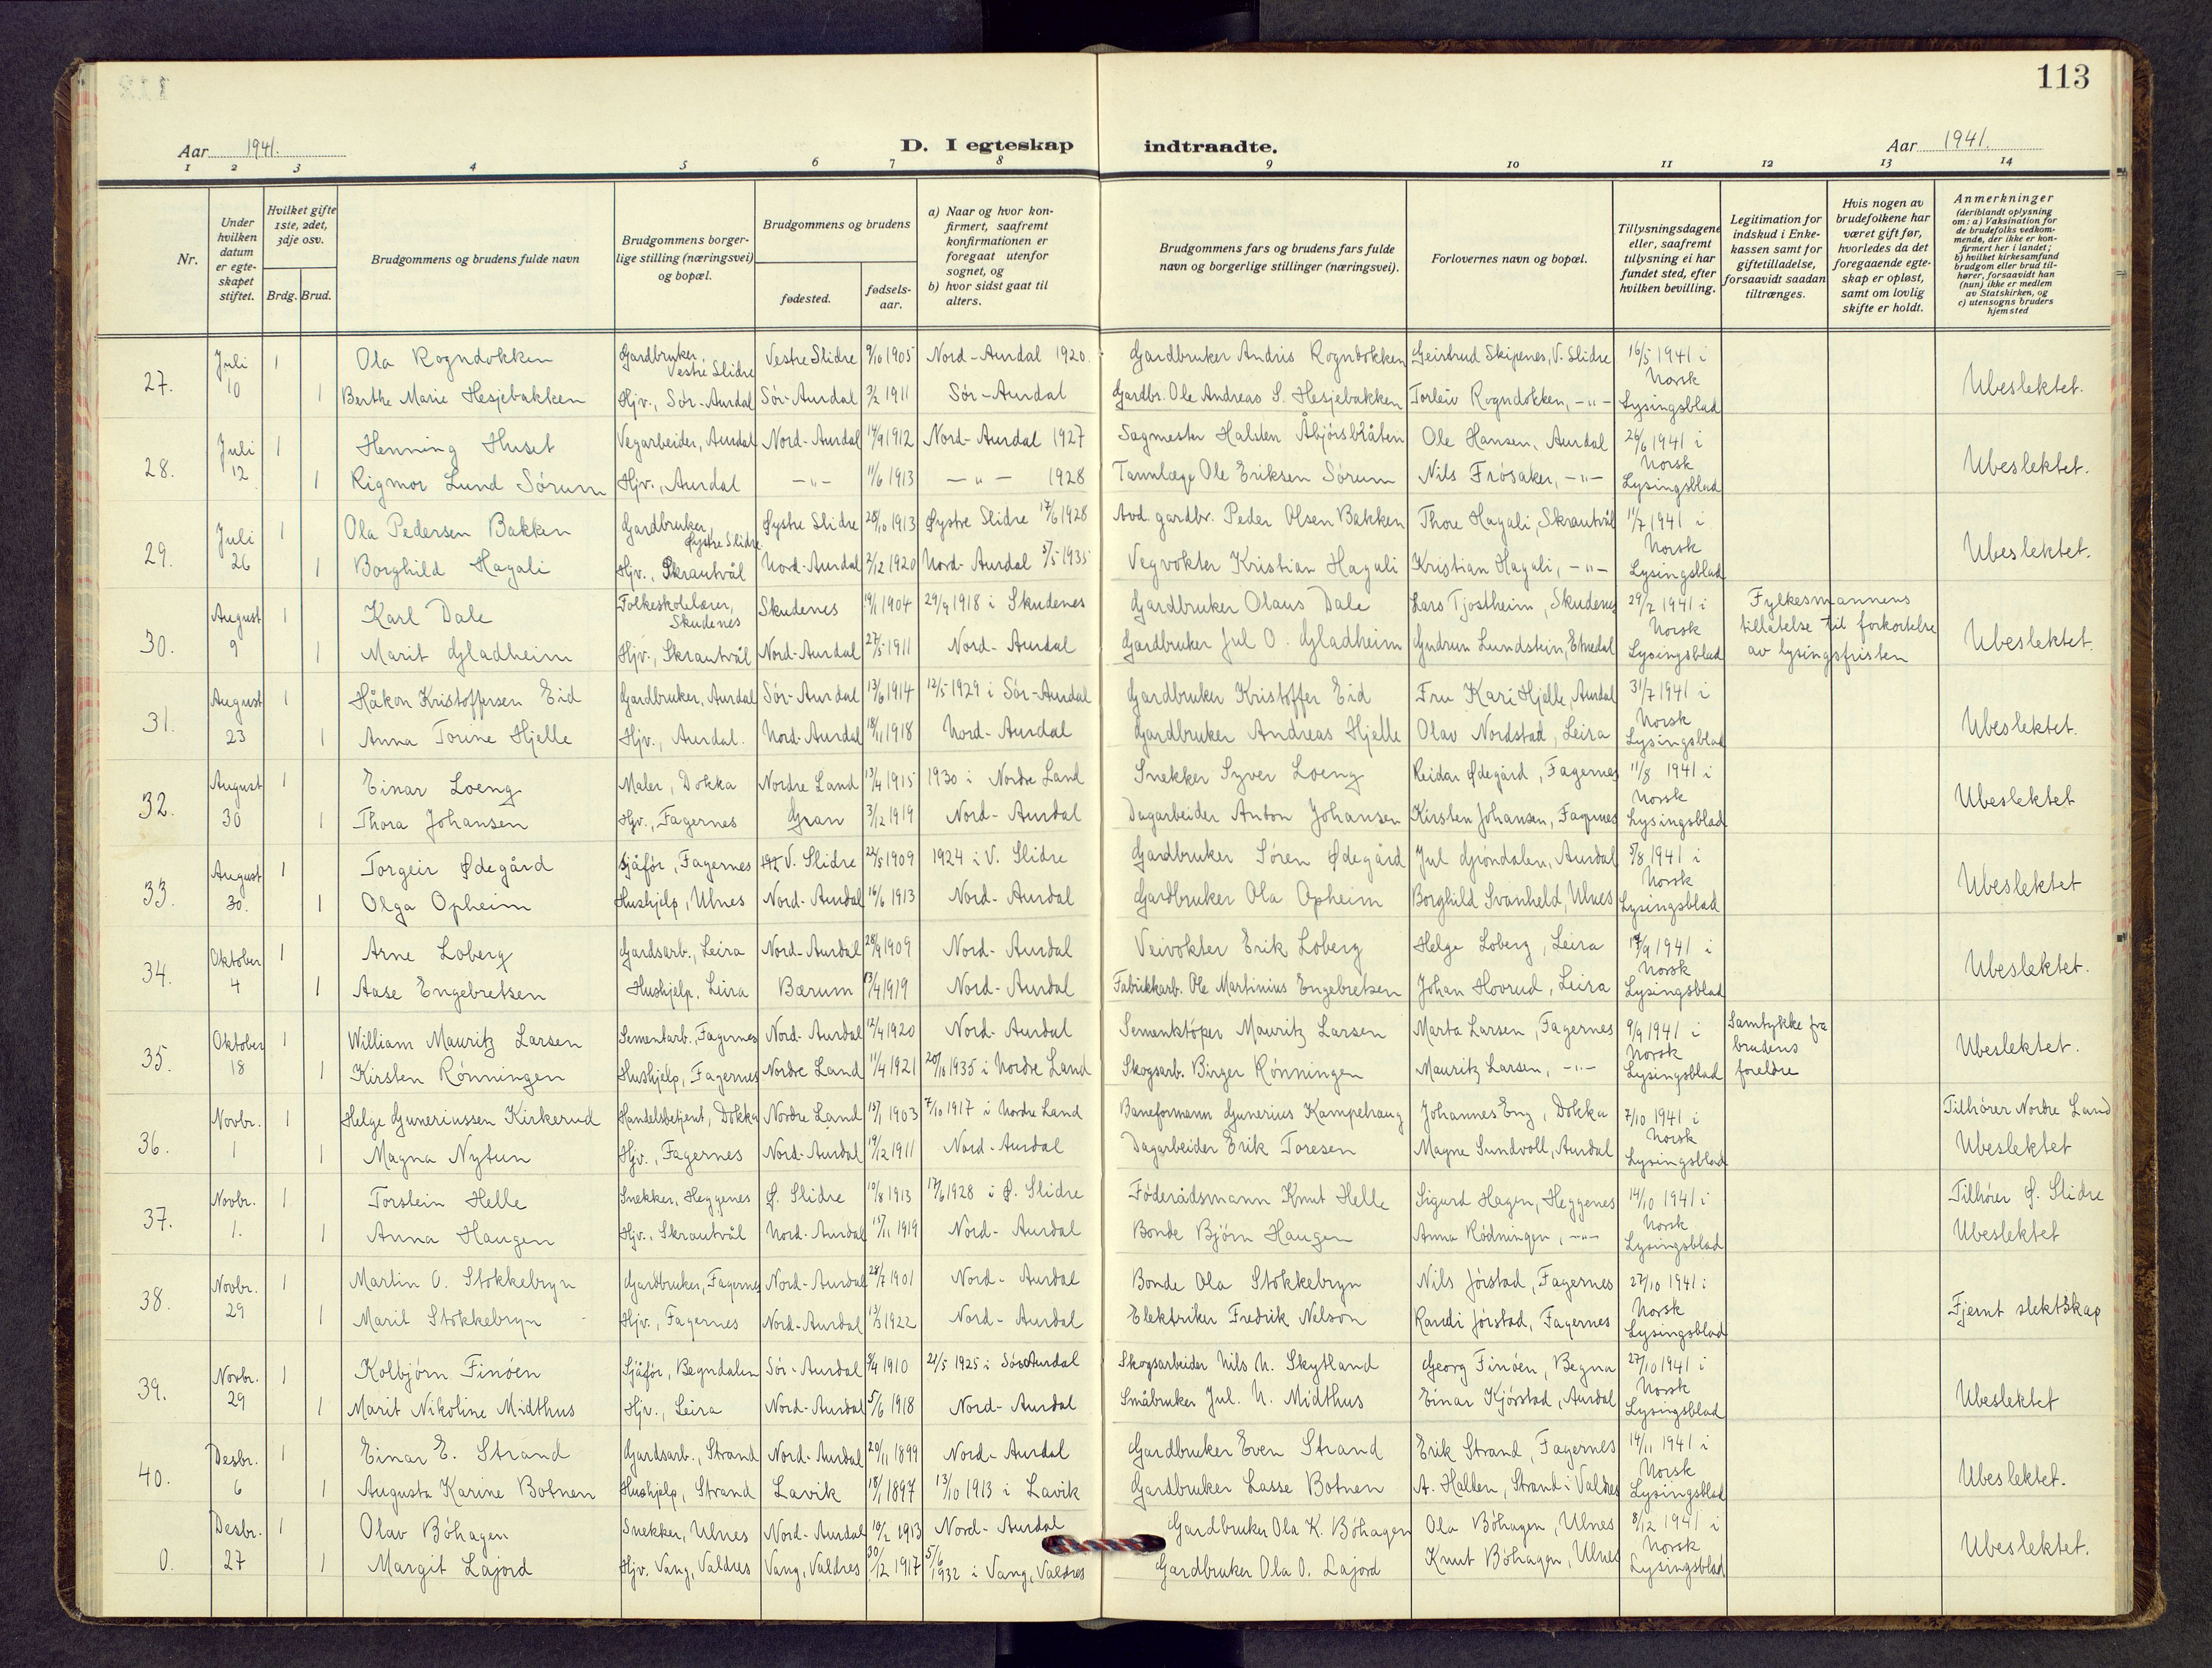 113
Aar 1941. D. I egteskap indtraadte. Aar 1941.
1 2 3 4 5 6 7 8 9 10 11 12 13 14
Nr.
Under hvilken datum er egteskapet stiftet.
Hvilket gifte 1ste, 2det, 3dje osv.
Brdg. Brud.
Brudgommens og brudens fulde navn
Brudgommens borgerlige stilling (næringsvei) og bopæl.
Brudgommens og brudens
fødested. fødselsaar.
a) Naar og hvor konfirmert, saafremt konfirmationen er foregaat utenfor sognet, og
b) hvor sidst gaat til alters.
Brudgommens fars og brudens fars fulde navn og borgerlige stillinger (næringsvei).
Forlovernes navn og bopæl.
Tillysningsdagene eller, saafremt tillysning ei har fundet sted, efter hvilken bevilling.
Legitimation for indskud i Enkekassen samt for giftetilladelse, forsaavidt saadan tiltrænges.
Hvis nogen av brudefolkene har været gift før, hvorledes da det foregaaende egteskap er opløst, samt om lovlig skifte er holdt.
Anmerkninger (deriblandt oplysning om: a) Vaksination for de brudefolks vedkommende, der ikke er konfirmert her i landet; b) hvilket kirkesamfund brudgom eller brud tilhører, forsaavidt han (hun) ikke er medlem av Statskirken, og c) utensogns bruders hjemsted
27. Juli 10 1 Ola Rogndokken Gardbruker, Vestre Slidre Vestre Slidre 9/10 1905 Nord-Aurdal 1920. Gardbruker Andris Rogndokken Geirtrud Skipenes, V. Slidre 16/5 1941 i Norsk Lysingsblad Ubeslektet.
1 Berthe Marie Hesjebakken Hjv., Sør-Aurdal Sør-Aurdal 3/2 1911 Sør-Aurdal Gardbr. Ole Andreas S. Hesjebakken Torleiv Rogndokken, -"-
28. Juli 12 1 Henning Huset Vegarbeider, Aurdal Nord-Aurdal 14/9 1912 Nord-Aurdal 1927 Sagmester Halsten Åbjørsbråten Ole Hansen, Aurdal 26/6 1941 i Norsk Lysingsblad Ubeslektet.
1 Rigmor Lund Sørum Hjv., Aurdal -"- 11/6 1913 -"- 1928 Tannlæge Ole Eriksen Sørum Nils Frøsaker, -"-
29. Juli 26 1 Ola Pedersen Bakken Gardbruker, Øystre Slidre Øystre Slidre 28/10 1913 Øystre Slidre 17/6 1928 Avd. gardbr. Peder Olsen Bakken Thore Hagali, Skrautvål 11/7 1941 i Norsk Lysingsblad Ubeslektet.
1 Borghild Hagali Hjv., Skrautvål Nord-Aurdal 2/12 1920 Nord-Aurdal 5/5 1935 Vegvokter Kristian Hagali Kristian Hagali, -"-
30. August 9 1 Karl Dale Folkeskolelærer, Skudenes Skudenes 19/1 1904 29/9 1918 i Skudenes Gardbruker Olaus Dale Lars Tjøstheim, Skudenes 29/7 1941 i Norsk Lysingsblad Fylkesmannens tillatelse til forkortelse av lysingsfristen Ubeslektet.
1 Marit Gladheim Hjv., Skrautvål Nord-Aurdal 27/5 1911 Nord-Aurdal Gardbruker Jul O. Gladheim Gudrun Lundstein, Etnedal
31. August 23 1 Håkon Kristoffersen Eid Gardbruker, Aurdal Sør-Aurdal 13/6 1914 12/5 1929 i Sør-Aurdal Gardbruker Kristoffer Eid Fru Kari Hjelle, Aurdal 31/7 1941 i Norsk Lysingsblad Ubeslektet.
1 Anna Torine Hjelle Hjv., Aurdal. Nord-Aurdal 18/11 1918 Nord-Aurdal Gardbruker Andreas Hjelle Olav Nordstad, Leira
32. August 30 1 Einar Loeng Maler, Dokka Nordre Land 13/4 1915 1930 i Nordre Land Snekker Syver Loeng Reidar Ødegård, Fagernes 11/8 1941 i Norsk Lysingsblad Ubeslektet
1 Thora Johansen Hjv., Fagernes Gran 3/12 1919 Nord-Aurdal Dagarbeider Anton Johansen Kirsten Johansen, Fagernes
33. August 30. 1 Torgeir Ødegård Sjåfør, Fagernes V. Slidre 22/5 1909 1924 i V. Slidre Gardbruker Søren Ødegård Jul Grøndalen, Aurdal 5/8 1941 i Norsk Lysingsblad Ubeslektet
1 Olga Opheim Hushjelp, Ulnes Nord-Aurdal 16/6 1913 Nord-Aurdal Gardbruker Ola Opheim Borghild Svanheld, Ulnes
34. Oktober 4 1 Arne Loberg Gardsarb., Leira Nord-Aurdal 28/9 1909 Nord-Aurdal Veivokter Erik Loberg Helge Loberg, Leira /9 1941 i Norsk Lysingsblad Ubeslektet.
1 Aase Engebretsen Hushjelp, Leira Bærum 13/4 1919 Nord-Aurdal Fabrikkarb. Ole Martinius Engebretsen Johan Hovrud, Leira
35. Oktober 18 1 William Mauritz Larsen Sementarb., Fagernes Nord-Aurdal 12/4 1920 Nord-Aurdal Sementstøper Mauritz Larsen Marta Larsen, Fagernes 9/9 1941 i Norsk Lysingsblad Samtykke fra brudens foreldre Ubeslektet.
1 Kirsten Rønningen Hushjelp, Fagernes Nordre Land 11/4 1921 20/10 1935 i Nordre Land Skogsarb. Birger Rønningen Mauritz Larsen, -"-
36. Novbr. 1 1 Helge Guneriussen Kirkerud Handelsbetjent, Dokka Nordre Land 15/1 1903 7/10 1917 i Nordre Land Baneformann Gunerius Kampehaug Johannes Eng, Dokka 7/10 1941 i Norsk Lysingsblad Tilhører Nordre Land Ubeslektet
1 Magna Nytun Hjv., Fagernes Nord-Aurdal 19/12 1911 Nord-Aurdal Dagarbeider Erik Toresen Magne Sundvoll, Aurdal
37. Novbr. 1. 1 Torstein Helle Snekker, Heggenes Ø. Slidre 10/8 1913 17/6 1928 i Ø. Slidre Føderådsmann Knut Helle Sigurd Hagen, Heggenes 14/10 1941 i Norsk Lysingsblad Tilhører Ø. Slidre Ubeslektet
1 Anna Haugen Hjv., Skrautvål Nord-Aurdal 15/11 1919 Nord-Aurdal Bonde Bjørn Haugen Anna Rødningen, -"-
38. Novbr. 29 1 Martin O. Stokkebryn Gardbruker, Fagernes Nord-Aurdal 28/7 1901 Nord-Aurdal Bonde Ola Stokkebryn Nils Jørstad, Fagernes 27/10 1941 i Norsk Lysingsblad Fjernt slektskap
1 Marit Stokkebryn Hjv., Fagernes Nord-Aurdal 1922 Nord-Aurdal Elektriker Fredrik Nelson Randi Jørstad, Fagernes
39. Novbr. 29 1 Kolbjørn Finøen Sjåfør, Begndalen Sør-Aurdal 9/4 1910 21/5 1925 i Sør-Aurdal Skogsarbeider Nils N. Skytland Georg Finøen, Begna 27/10 1941 i Norsk Lysingsblad Ubeslektet
1 Marit Nikoline Midthus Hjv., Leira Nord-Aurdal 5/6 1918 Nord-Aurdal Småbruker Jul. N. Midthus Einar Kjørstad, Aurdal
40. Desbr. 6 1 Einar E. Strand Gardsarb., Strand Nord-Aurdal 20/11 1899 Nord-Aurdal Gardbruker Even Strand Erik Strand, Fagernes 14/11 1941 i Norsk Lysingsblad Ubeslektet.
1 Augusta Karine Botnen Hushjelp, Strand Lavik 18/1 1897 13/10 1913 i Lavik Gardbruker Lasse Botnen A. Halden, Strand i Valdres
0. Desbr. 27 1 Olav Bøhagen Snekker, Ulnes Nord-Aurdal 10/2 1913 Nord-Aurdal Gardbruker Ola K. Bøhagen Ola Bøhagen, Ulnes 8/12 1941 i Norsk Lysingsblad Ubeslektet.
1 Margit Lajord Hjv. Vang, Valdres Vang, Valdres 30/12 1917 5/6 1932 i Vang, Valdres Gardbruker Ola O. Lajord Knut Bøhagen, Ulnes